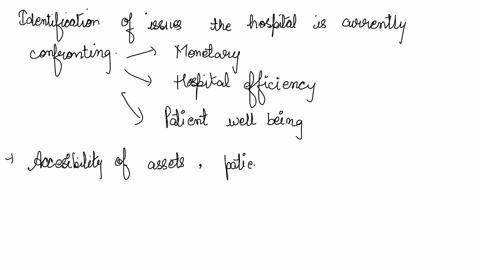 Identification of issues the hospital is currently
confronting. → Monetary
→ Hospital efficiency
→ Patient well being
→ Accesibility of assets, patie